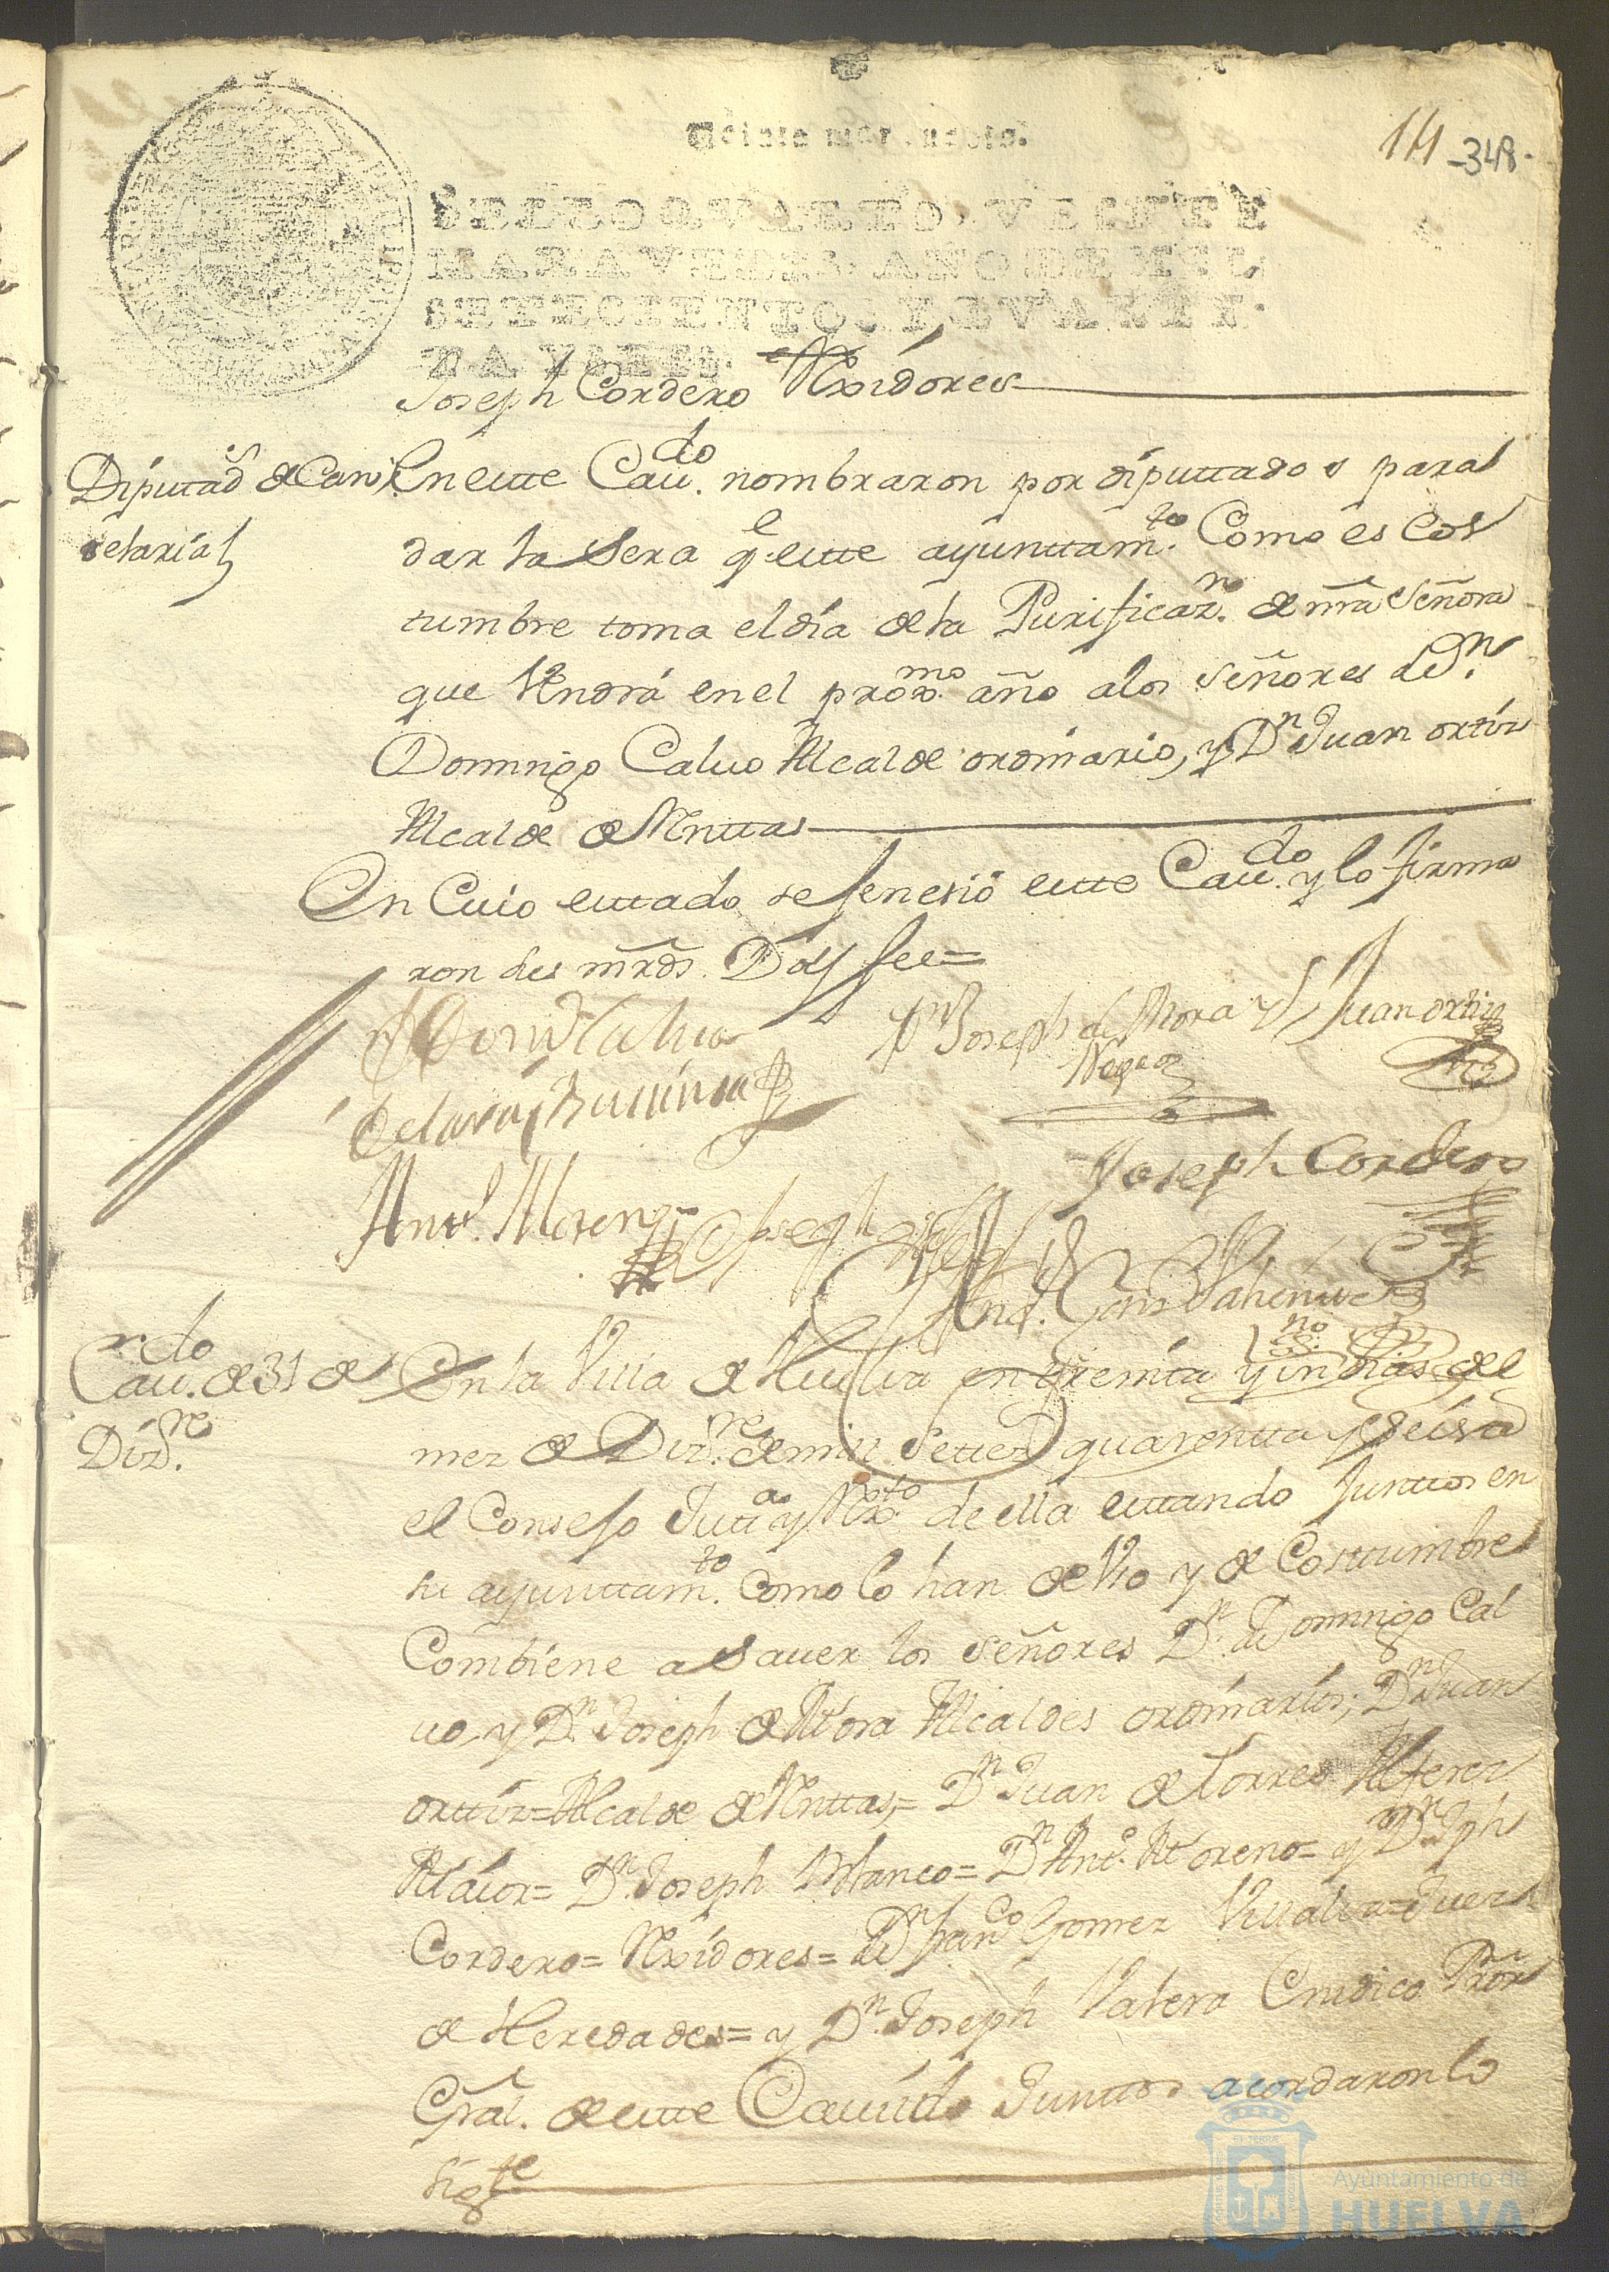 Veinte maravedis.
114 -348-
SELLO QVARTO, VEINTE
MARAVEDIS, AÑO DE MIL
SETECIENTOS Y QVAREN-
TA Y SEIS.
Joseph Cordero Rexidores
Diputads de Can
delaria
En este Cavdo. nombraron por diputtados para
dar la Sera qe. este ayunttamto. Como es Cos
tumbre toma el día de la Purificazn. de nra Señora
que Vendrá en el proxmo. año a los Señores Dn.
Domingo Calvo Alcalde ordinario, y Dn Juan ortiz
Alcalde de Rnttas
En Cuio esttado se fenesió este Cavdo. y lo firma
ron sus mrds. Doy fee=
Dn Joseph de Mora y
Negra
Juan ortiz
Joseph Cordero
Antº. Moreno
Cavdo. de 31 de
Dizre.
En la Villa de Huelva en treinta y un dias del
mez de Dizre. de mill Settezs quarentta y seis a
el Consejo Justta y Rexto de ella esttando Junttos en
su ayunttamto. Como lo han de Vso y de Costtumbre
Combiene a Saver los Señores Dn. Domingo Cal
vo, y Dn. Joseph de Mora Alcaldes ordinarios; Dn Juan
orttiz= Alcalde de Rnttas,= Dn Juan de Torres Alferez
Maior= Dn. Joseph Blanco= Dn Antº. Moreno= y Dn Jph
Cordero= Rexidores= Dn Franco Gomez Villalva= Juez
de Heredades= y Dn. Joseph Valero Sindico Pror
Gral. de este Cavildo Junttos acordaron lo
sigte
Ayuntamiento de
HUELVA